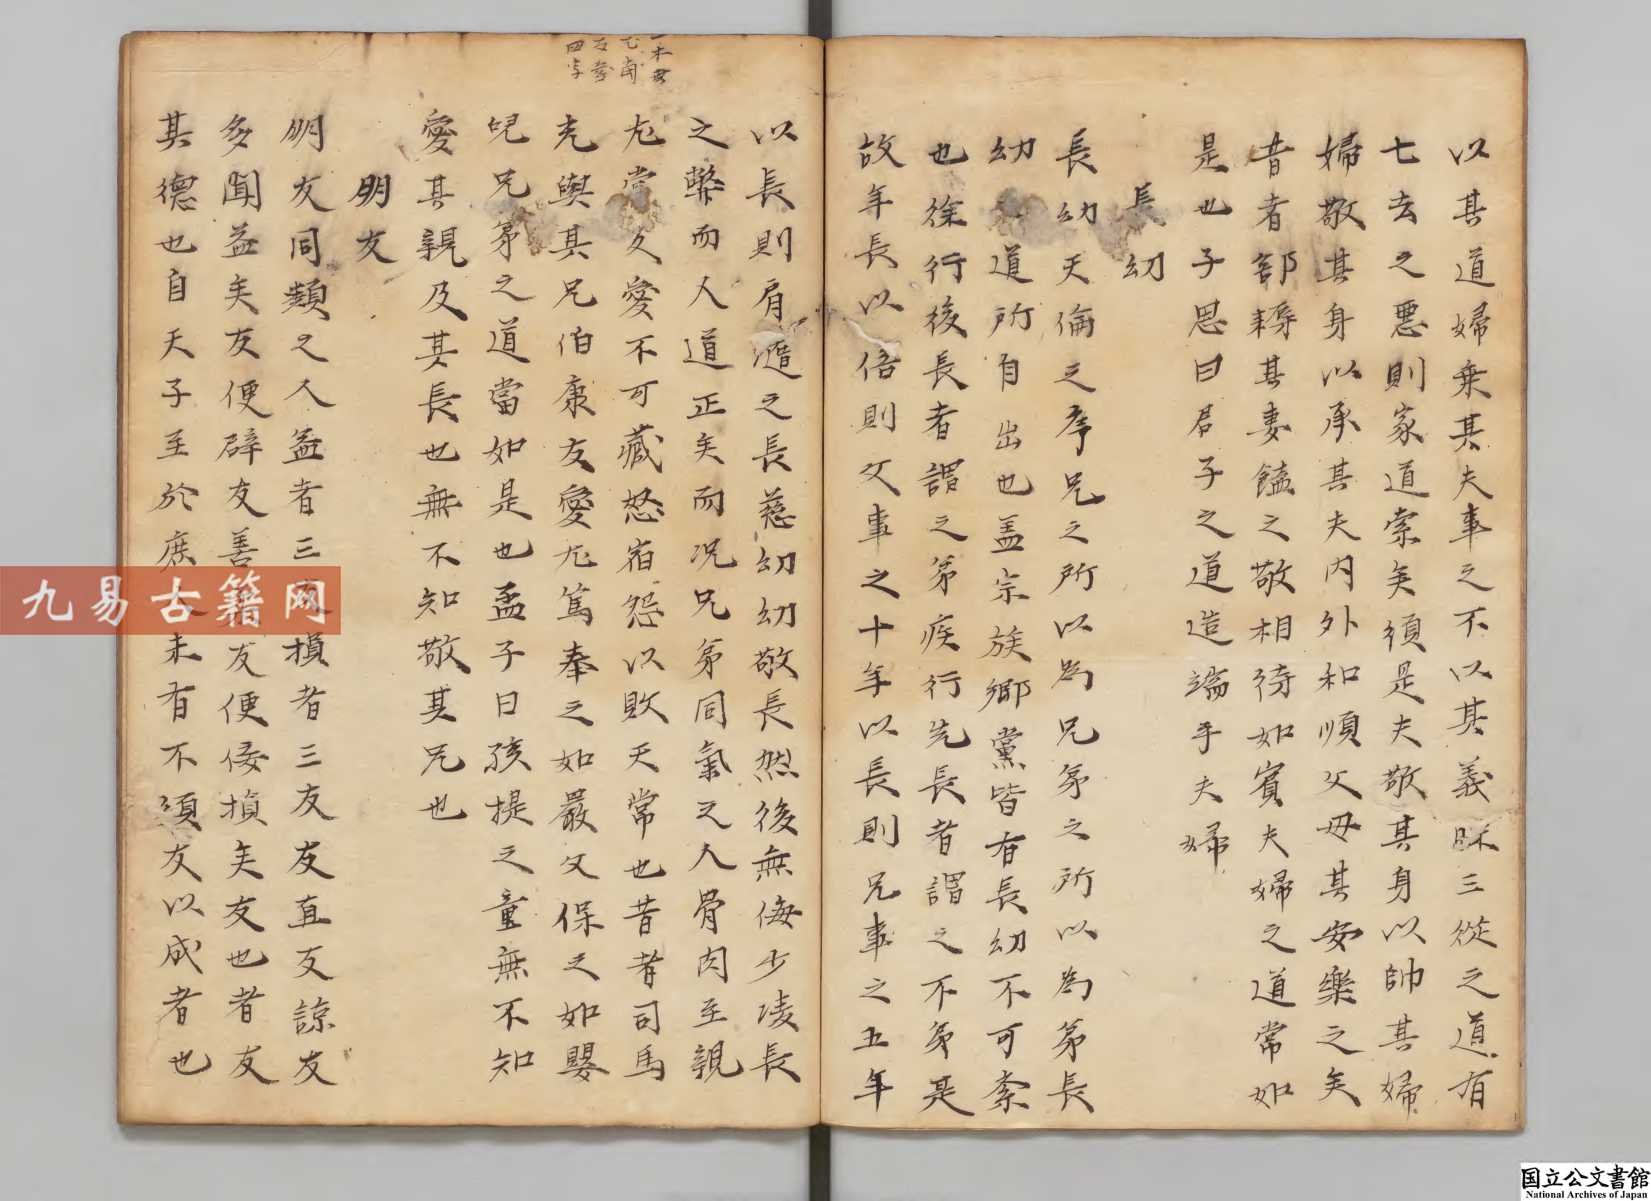 以其道婦乗其夫事之不以其義昧三從之道有
七去之悪則家道索矣須是夫敬其身以帥其婦
婦敬其身以承其夫内外和順父母其安樂之矣
昔者郤耨其妻饁之敬相待如賓夫婦之道常如
是也子思曰君子之道造端乎夫婦
長幼
長幼天倫之序兄之所以為兄弟之所以為弟長
幼道所自出也盖宗族郷黨皆有長幼不可紊
也徐行後長者謂之弟疾行先長者謂之不弟是
故年長以倍則父事之十年以長則兄事之五年
以長則肩隨之長慈幼幼敬長然後無侮少凌長
之弊而人道正矣而况兄弟同氣之人骨肉至親
尤當友愛不可藏怒宿怨以敗天常也昔者司馬
光與其兄伯康友愛尤篤奉之如嚴父保之如嬰
兒兄弟之道當如是也孟子曰孩提之童無不知
愛其親及其長也無不知敬其兄也
朋友
朋友同類之人益者三友損者三友友直友諒友
多聞益矣友便辟友善友便佞損矣友也者友
其德也自天子至於庶未有不須友以成者也
九易古籍网
国立公文書館
National Archives of Japan